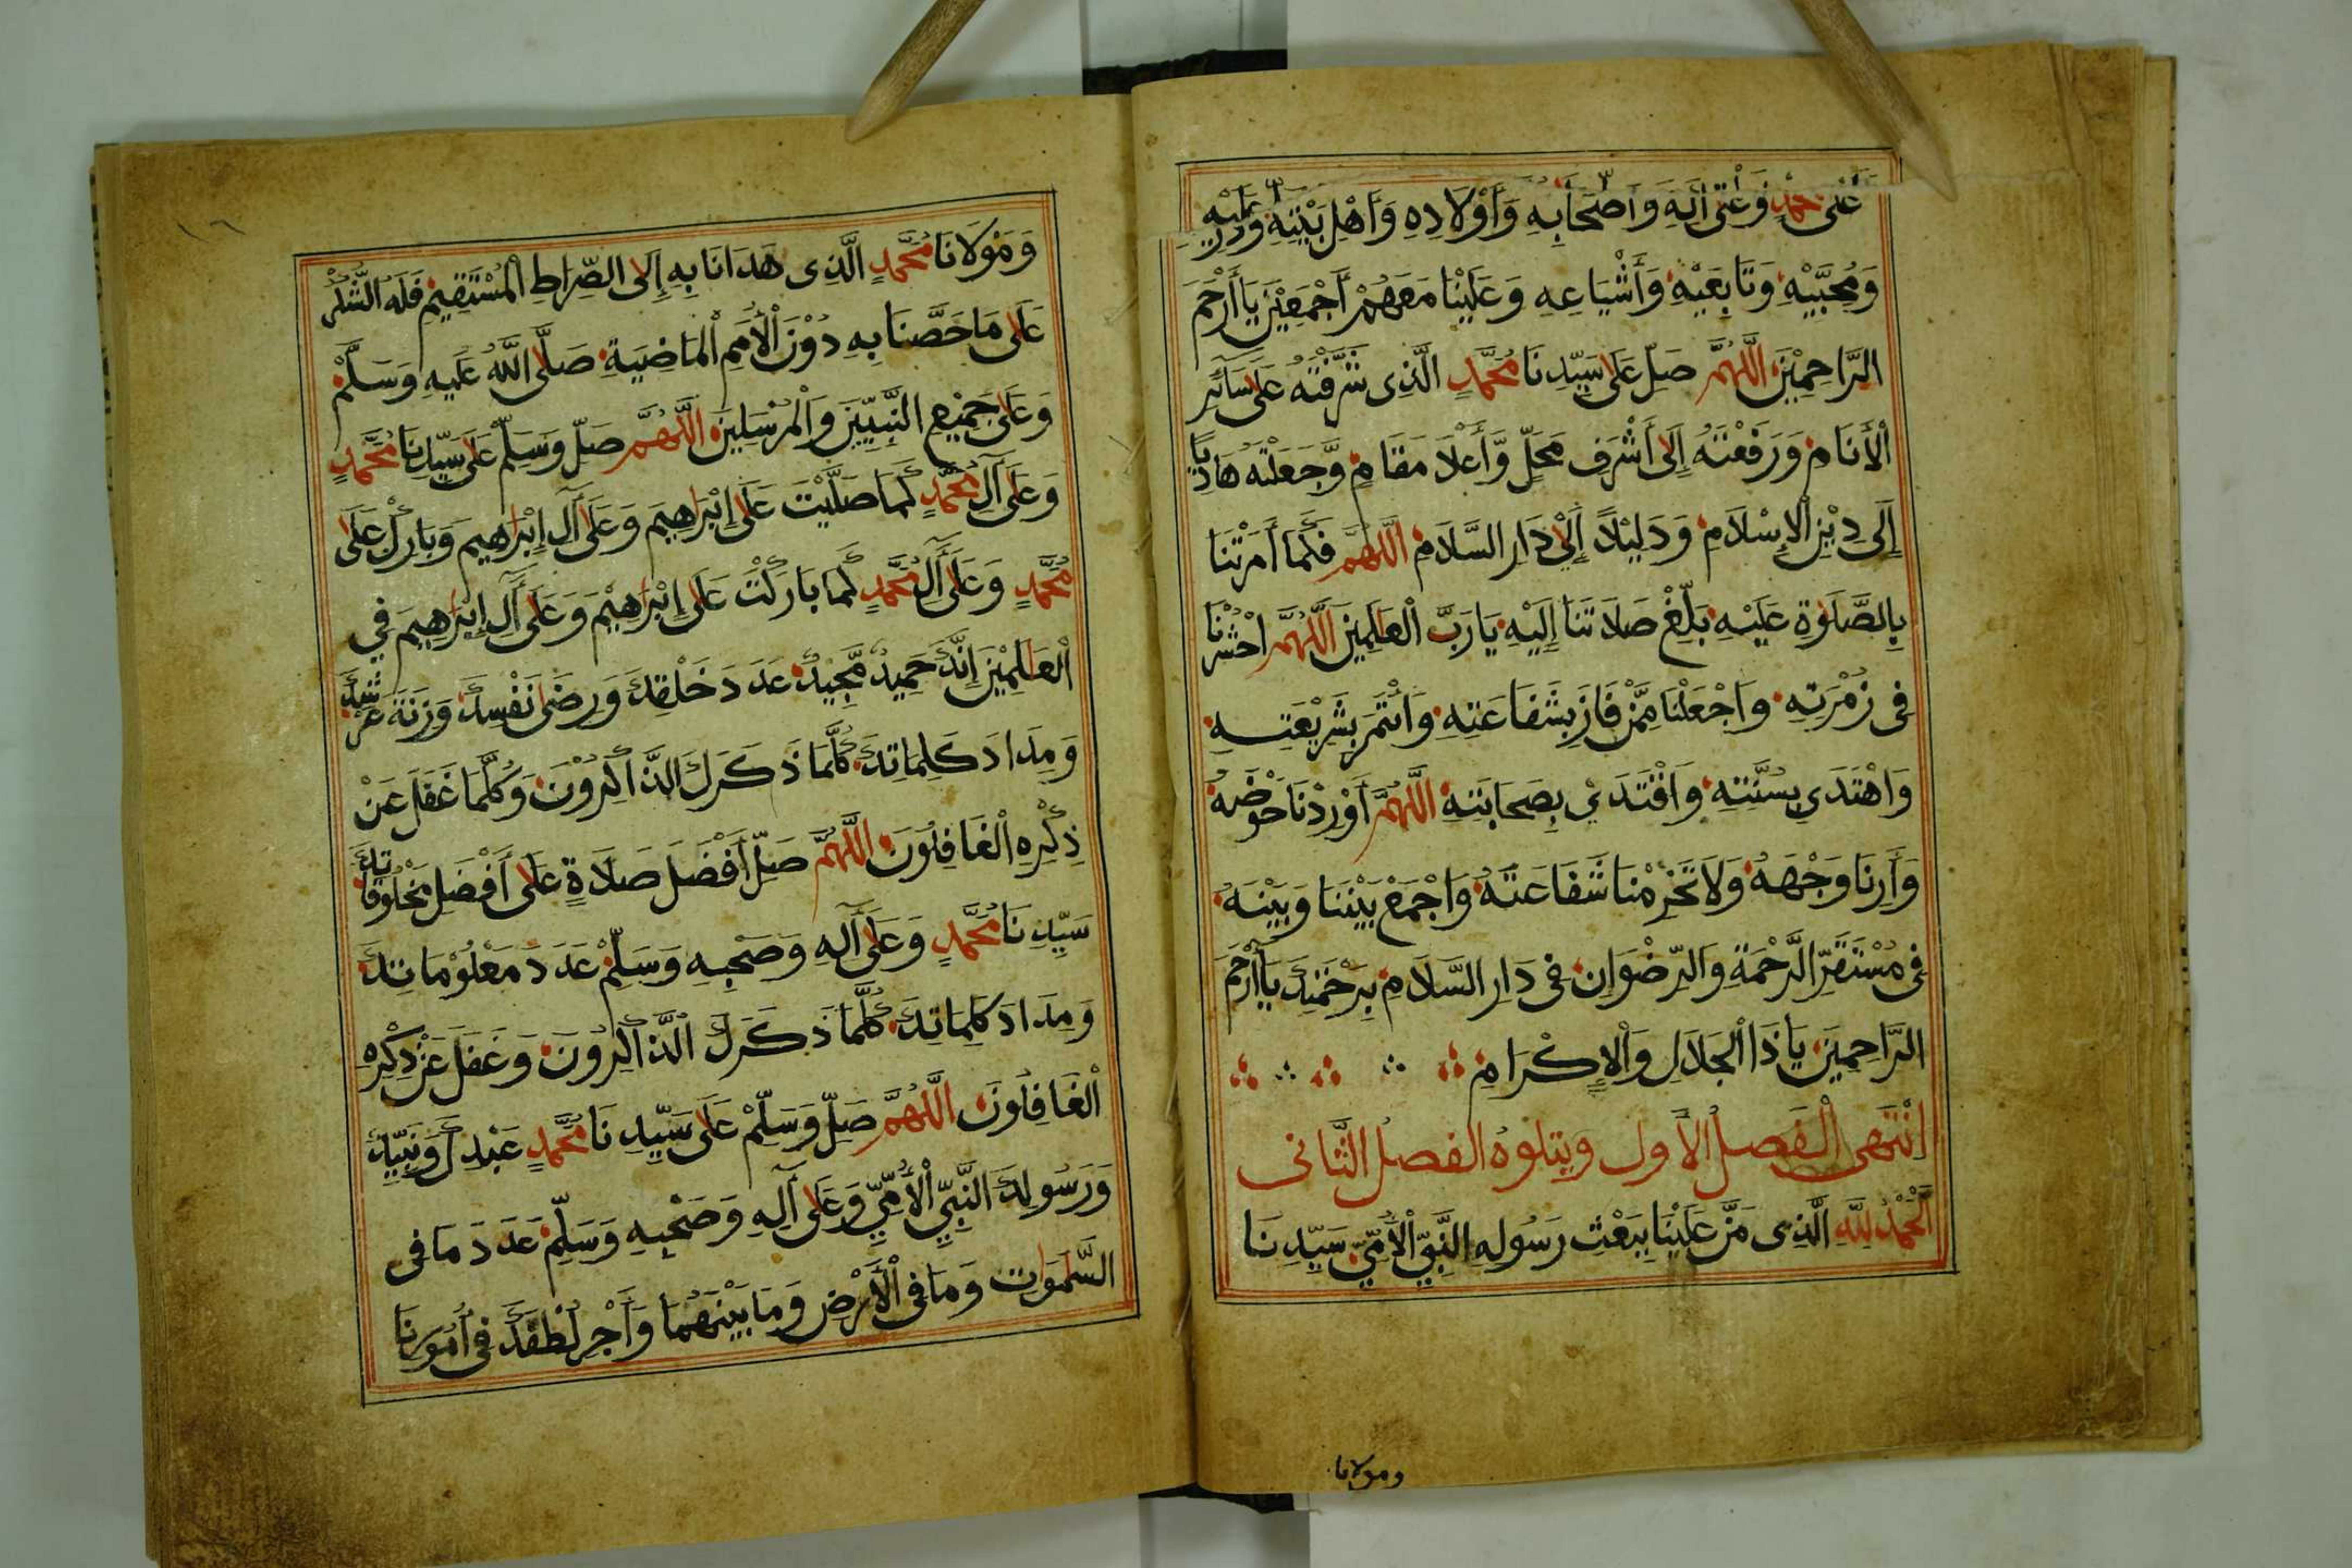 عَلَى مُحَمَّدٍ وَعَلَى آلِهِ وَأَصْحَابِهِ وَأَوْلَادِهِ وَأَهْلِ بَيْتِهِ وَذُرِّيَّتِهِ
وَمُحِبَّيْهِ وَتَابِعَيْهِ وَأَشْيَاعِهِ وَعَلَيْنَا مَعَهُمْ أَجْمَعِيْنَ يَا أَرْحَمَ
الرَّاحِمِيْنَ اللَّهُمَّ صَلِّ عَلَى سَيِّدِنَا مُحَمَّدٍ الَّذِى شَرَّفْتَهُ عَلَى سَآئِرِ
الْأَنَامِ وَرَفَعْتَهُ إِلَى أَشْرَفِ مَحَلٍّ وَّأَعْلَا مَقَامٍ وَّجَعَلْتَهُ هَادِيًا
إِلَى دِيْنِ الْإِسْلَامِ وَدَلِيْلًا إِلَىْ دَارِ السَّلَامِ اللَّهُمَّ فَكَمَا أَمَرْتَنَا
بِالصَّلَوٰةِ عَلَيْهِ بَلِّغْ صَلَاتَنَا إِلَيْهِ يَا رَبَّ الْعَالَمِيْنَ اللَّهُمَّ احْشُرْنَا
فِى زُمْرَتِهِ وَاجْعَلْنَا مِمَّنْ فَازَ بِشَفَاعَتِهِ وَائْتَمَرَ بِشَرِيْعَتِهِ
وَاهْتَدَى بِسُنَّتِهِ وَاقْتَدَىْ بِصَحَابَتِهِ اللَّهُمَّ أَوْرِدْنَا حَوْضَهُ
وَأَرِنَا وَجْهَهُ وَلَا تَحْرِمْنَا شَفَاعَتَهُ وَاجْمَعْ بَيْنَنَا وَبَيْنَهُ
فِى مُسْتَقَرِّ الرَّحْمَةِ وَالرِّضْوَانِ فِى دَارِ السَّلَامِ بِرَحْمَتِكَ يَا أَرْحَمَ
الرَّاحِمِيْنَ يَا ذَا الْجَلَالِ وَالْإِكْرَامِ
انْتَهَى الْفَصلُ الْأَول ويتلوهُ الفصلُ الثَّانى
اَلْحَمْدُ لِلَّهِ الَّذِى مَنَّ عَلَيْنَا بِبَعْثِ رَسُولِهِ النَّبِيِّ الْأُمِّيِّ سَيِّدِنَا
ومولانا
وَمَوْلَانَا مُحَمَّدٍ الَّذِى هَدَانَا بِهِ إِلَى الصِّرَاطِ الْمُسْتَقِيْمِ فَلَهُ الشُّكْرُ
عَلَى مَا خَصَّنَا بِهِ دُوْنَ الْأُمَمِ الْمَاضِيَةِ صَلَّى اللَّهُ عَلَيهِ وَسَلَّمْ
وَعَلَى جَمِيْعِ النَّبِيِّيْنَ وَالْمُرْسَلِيْنَ اللَّهُمَّ صَلِّ وَسَلِّمْ عَلَى سَيِّدِنَا مُحَمَّدٍ
وَعَلَى آلِ مُحَمَّدٍ كَمَا صَلَّيْتَ عَلَى إِبْرَاهِيمَ وَعَلَى آلِ إِبْرَاهِيمَ وَبَارِكْ عَلَى
مُحَمَّدٍ وَعَلَى آلِ مُحَمَّدٍ كَمَا بَارَكْتَ عَلَى إِبْرَاهِيْمَ وَعَلَى آلِ إِبْرَاهِيمَ فِي
الْعَالَمِيْنَ إِنَّكَ حَمِيْدٌ مَّجِيْدٌ عَدَدَ خَلْقِكَ وَرِضَى نَفْسِكَ وَزِنَةَ عَرْشِكَ
وَمِدَادَ كَلِمَاتِكَ كُلَّمَا ذَكَرَكَ الذَّاكِرُوْنَ وَكُلَّمَا غَفَلَ عَنْ
ذِكْرِهِ الْغَافِلُوْنَ اللَّهُمَّ صَلِّ أَفْضَلَ صَلَاةٍ عَلَى أَفْضَلِ مَخْلُوقَاتِكَ
سَيِّدِنَا مُحَمَّدٍ وَعَلَى آلِهِ وَصَحْبِهِ وَسَلِّمْ عَدَدَ مَعْلُوْمَاتِكَ
وَمِدَادَ كَلِمَاتِكَ كُلَّمَا ذَكَرَكَ الذَّاكِرُوْنَ وَغَفَلَ عَنْ ذِكْرِهِ
الْغَافِلُوْنَ اللَّهُمَّ صَلِّ وَسَلِّمْ عَلَى سَيِّدِنَا مُحَمَّدٍ عَبْدِكَ وَنَبِيِّكَ
وَرَسُولِكَ النَّبِيِّ الْأُمِّيِّ وَعَلَى آلِهِ وَصَحْبِهِ وَسَلِّمْ عَدَدَ مَا فِى
السَّمٰوَاتِ وَمَا فِى الْأَرْضِ وَمَا بَيْنَهُمَا وَأَجْرِ لُطْفَكَ فِى أُمُوْرِنَا